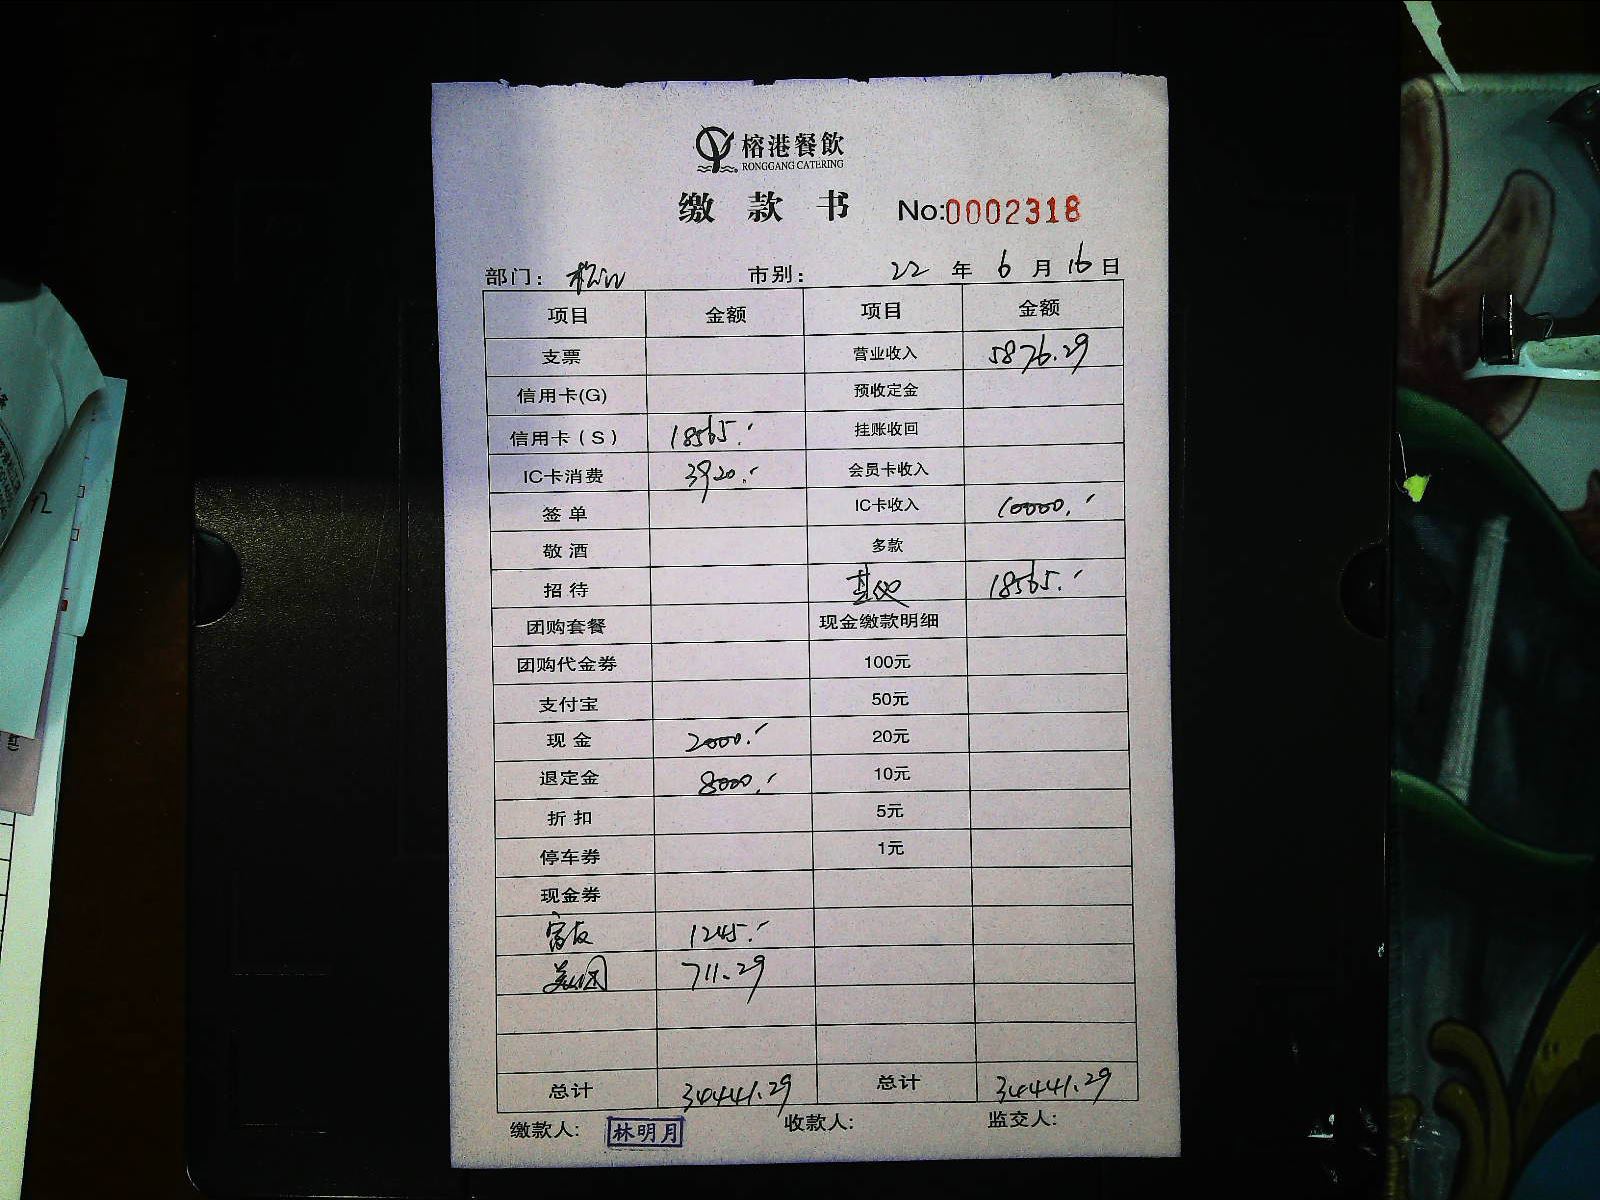 榕港餐飲
RONGGANG CATERING
缴款书 No:0002318
部门: 松江 市别: 22 年 6 月 16 日
项目 金额 项目 金额
支票 营业收入 5876.29
信用卡(G) 预收定金
信用卡(S) 18565.- 挂账收回
IC卡消费 3920.- 会员卡收入
签单 IC卡收入 10000.-
敬酒 多款
招待 其他 18565.-
团购套餐 现金缴款明细
团购代金券 100元
支付宝 50元
现金 2000.- 20元
退定金 8000.- 10元
折扣 5元
停车券 1元
现金券
富友 1245.-
美团 711.29
总计 34441.29 总计 34441.29
缴款人: 林明月 收款人: 监交人: